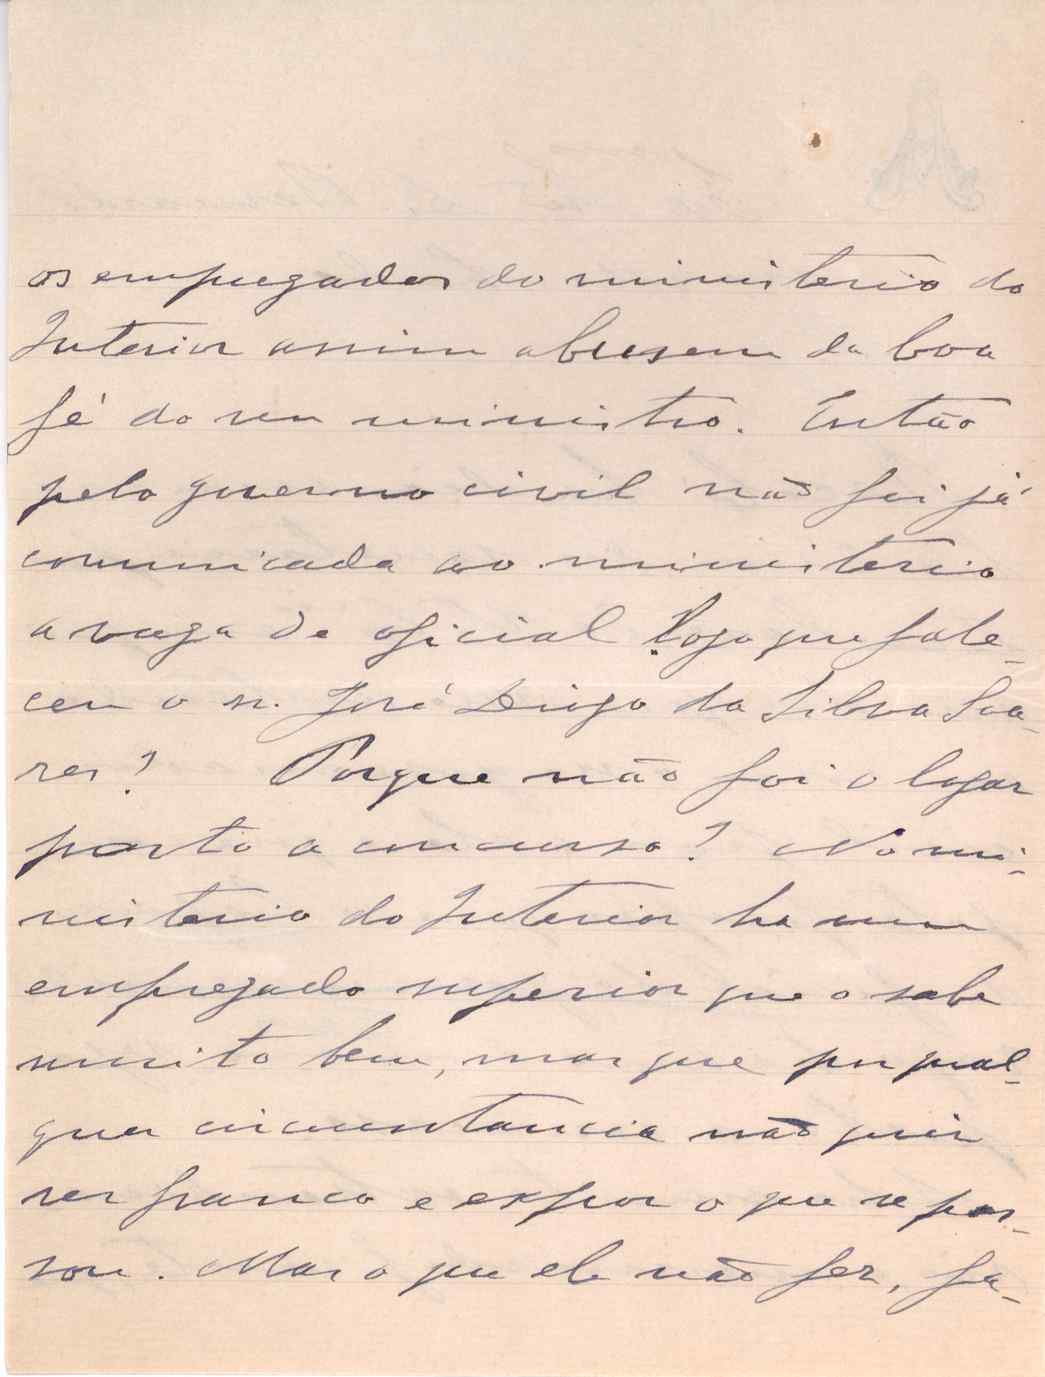 os empregados do ministerio do
Interior assim abusem da boa
fé do seu ministro. Então
pelo governo civil não foi já
comunicada ao ministerio
a vaga de oficial logo que fale-
ceu o sr. José Diogo da Silva Soa-
res? Porque não foi o logar
posto a concurso? No mi-
nisterio do Interior ha um
empregado superior que o sabe
muito bem, mas que por qual-
quer circunstancia não quis
ser franco e expor o que se pas-
sou. Mas o que ele não fez, fa-